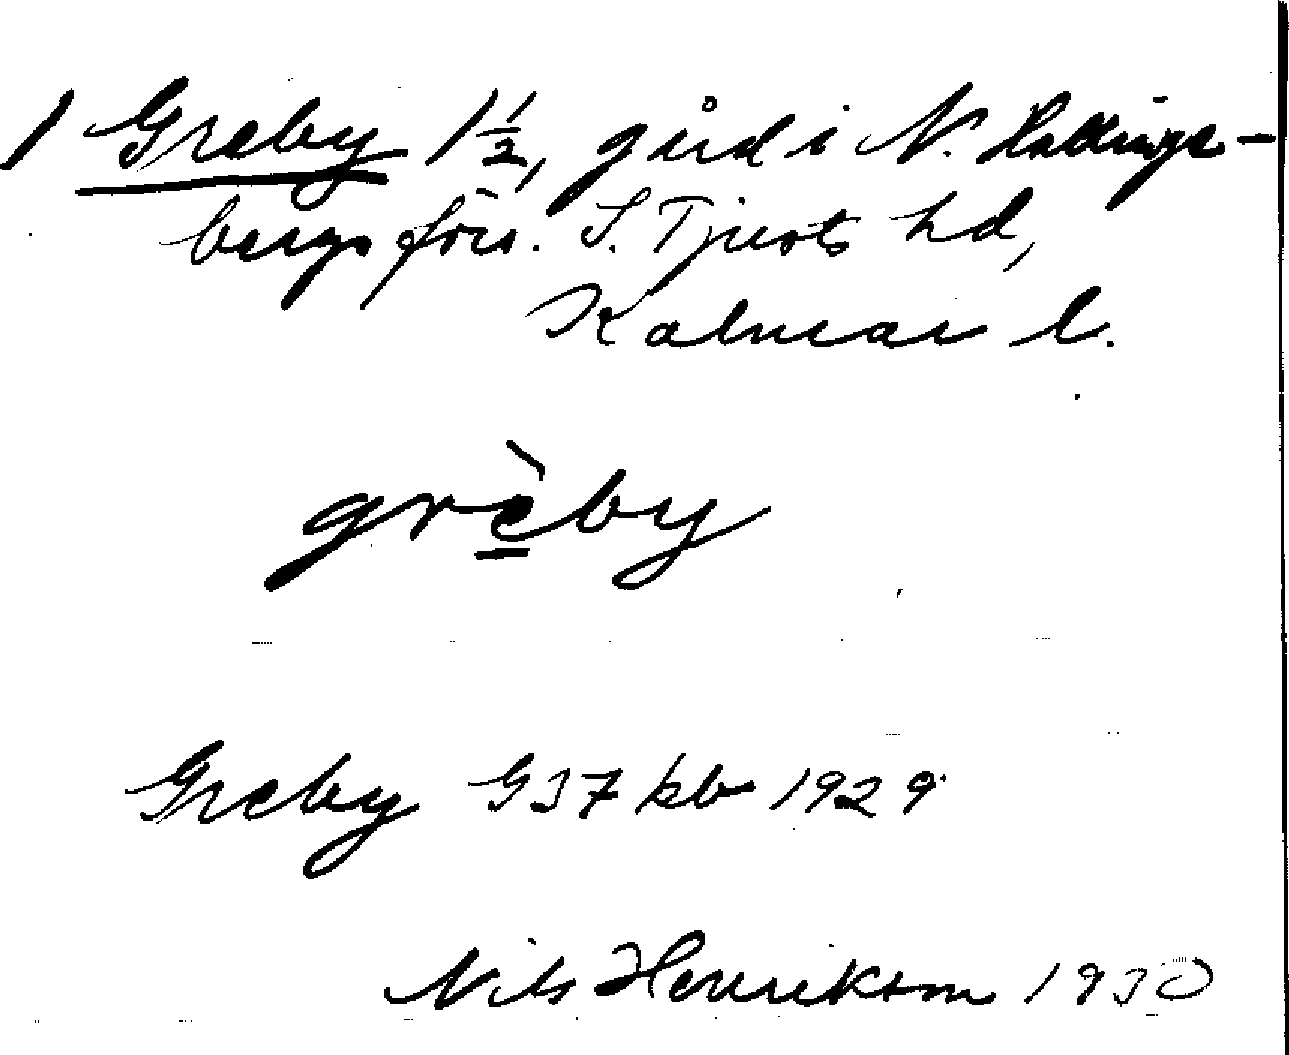 1 Greby 1 1/2, gård i N. Hallings-
bergs förs. S. Tjusts hd,
Kalmar l.
grèby
Greby G 37 kb 1929
Nils Henrikson 1930